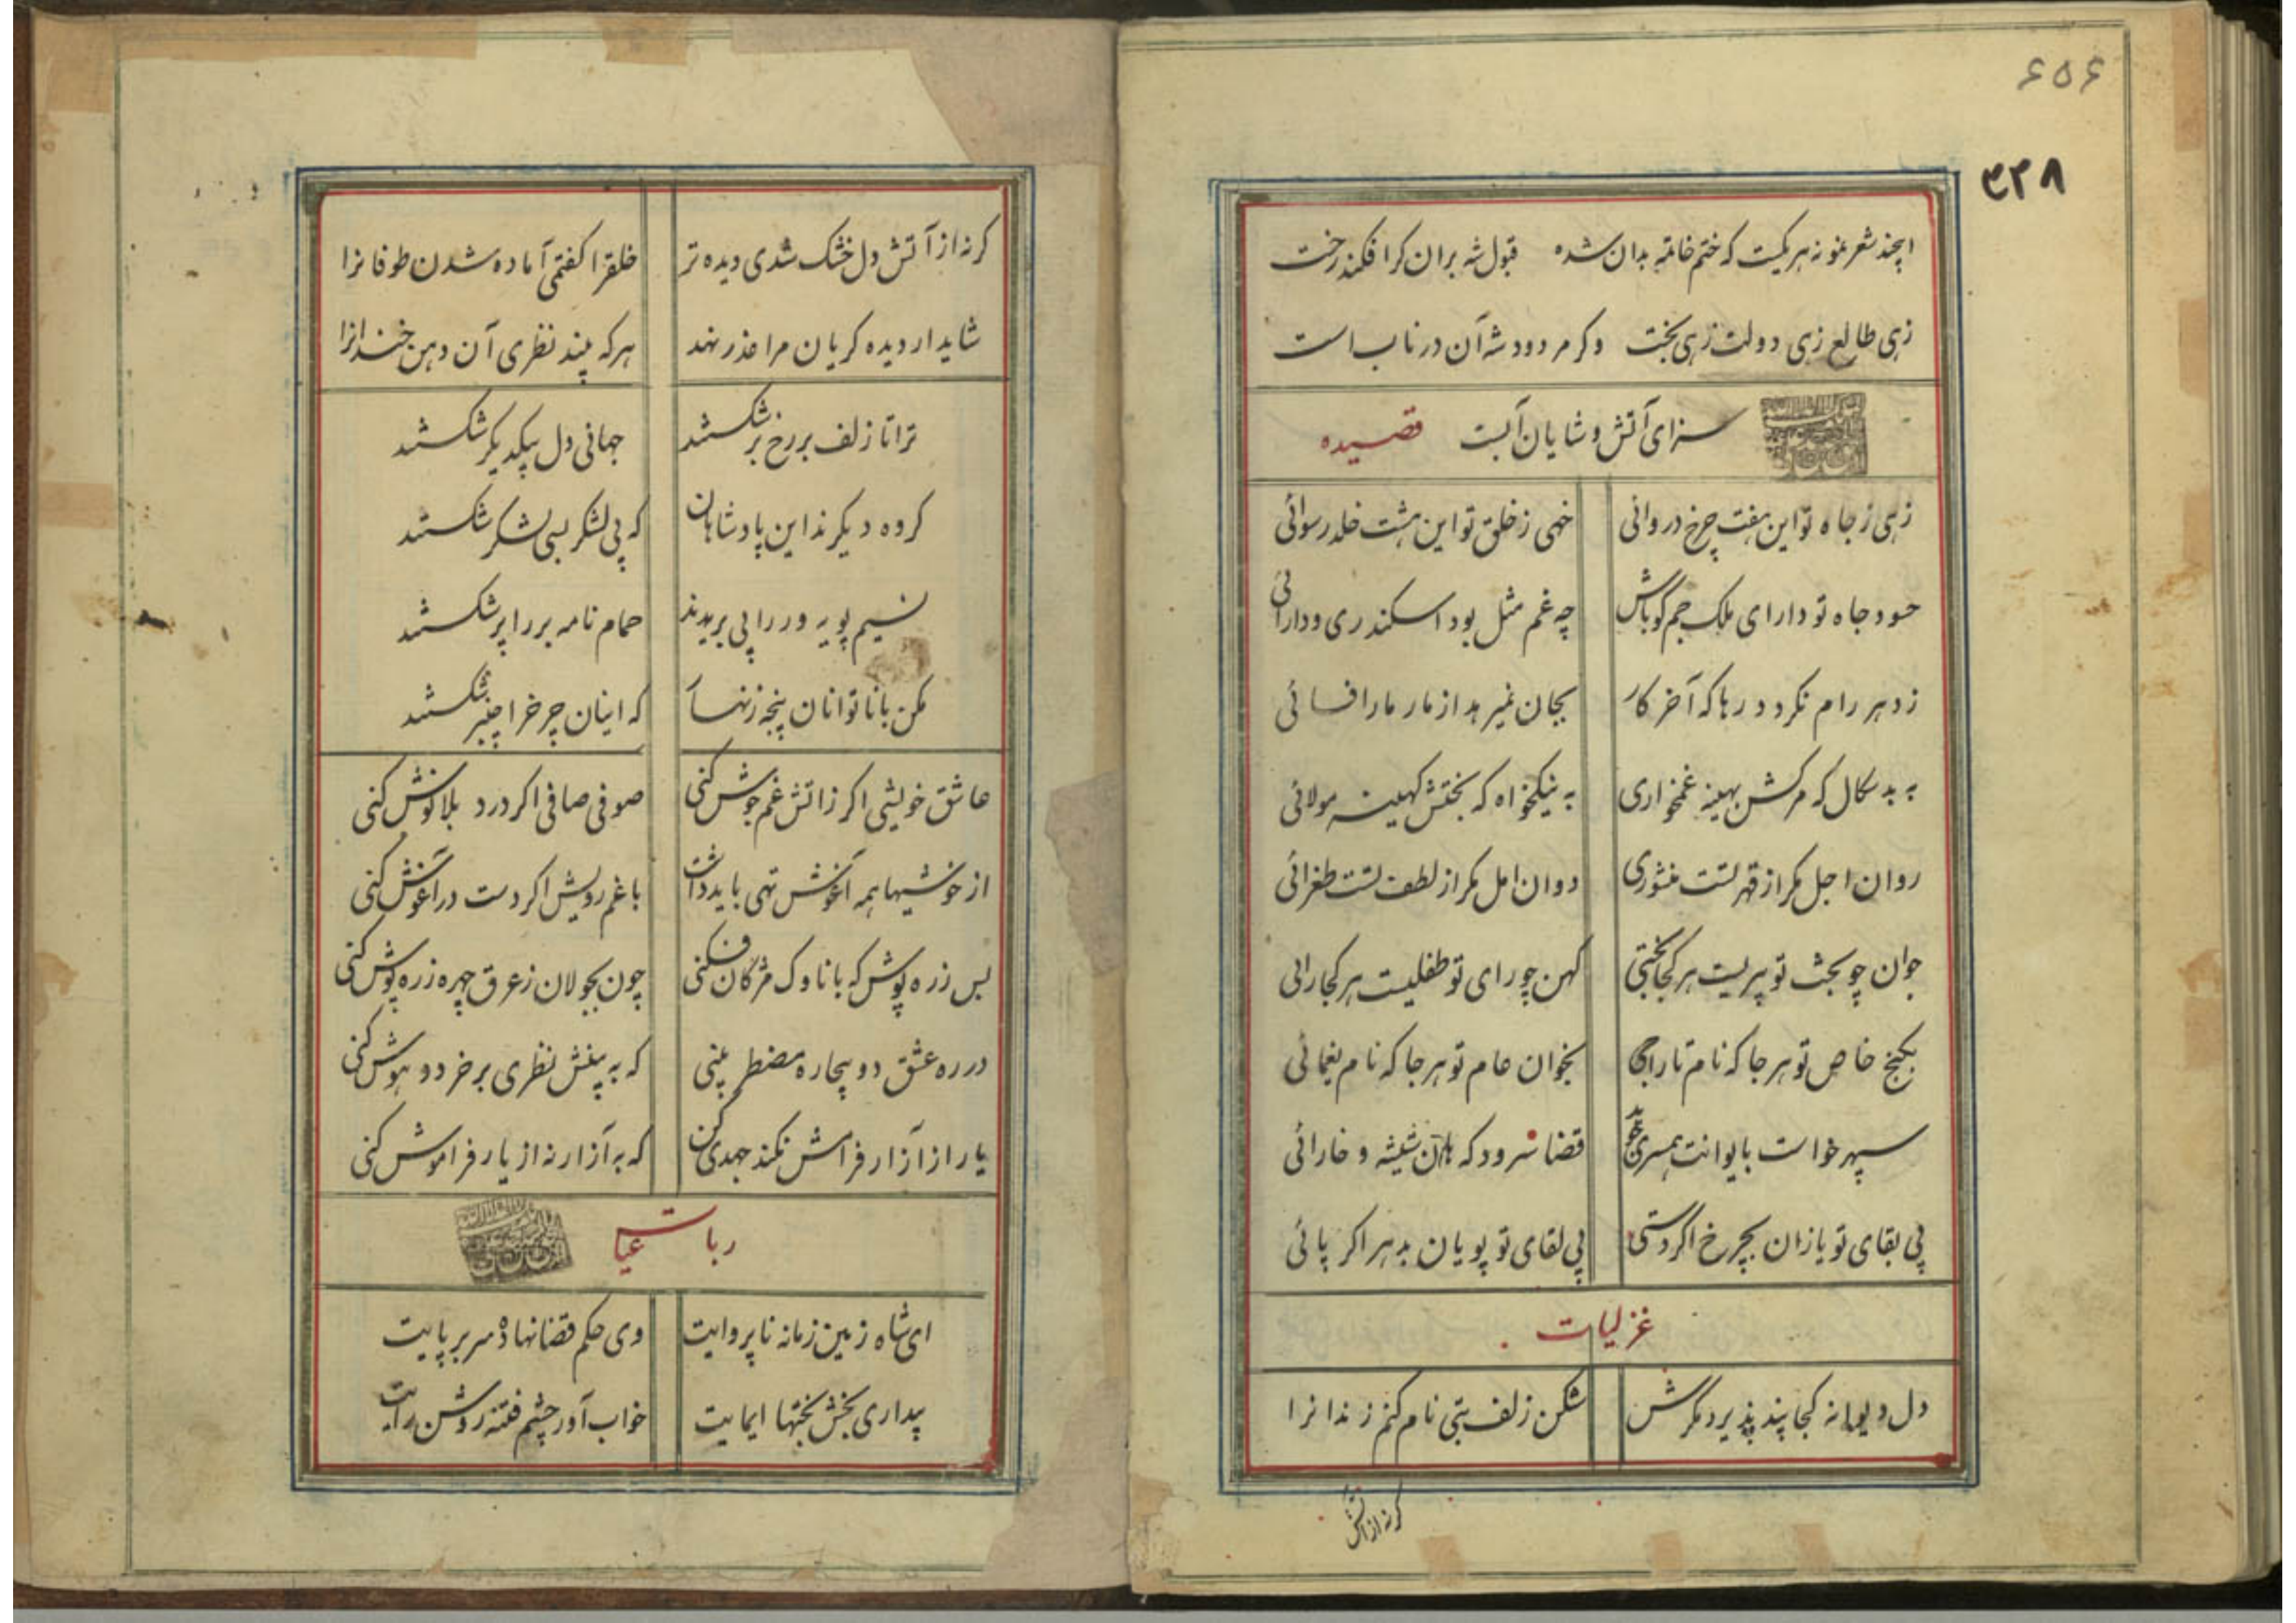 ۶۵۶
۳۲۸
اینچند شعر نمونه هر یکیست که ختم خاتمه بدان شده قبول شه بران کرا فکند رخت
زهی طالع زهی دولت زهی بخت وکر مردود شه آن در ناب است
سزای آتش و شایان آبست قصیده
زهی ز جاه تو این هفت چرخ دروائی خهی ز خلق تو این هشت خلد رسوائی
حسود جاه تو دارای ملک جم کو باش چه غم مثل بود اسکندری و دارائی
ز دهر رام نکردد رها که آخر کار بجان نمیرهد از مار مار افسائی
به بد سکال که مرکش بهینه غمخواری به نیکخواه که بختش کهینه مولائی
روان اجل مکر از قهر تست منشوری دوان امل مکر از لطف تست طغرائی
جوان چو بخت تو پیریست هر کجا بختی کهن چو رای تو طفلیست هر کجا رائی
بکنج خاص تو هر جا که نام تاراجی بخوان عام تو هر جا که نام یغمائی
سپهر خواست بایوانت همسری قضا سرود که هان شیشه و خارائی
پی بقای تو یازان بچرخ اکر دستی پی لقای تو پویان بدهر اکر پائی
غزلیات
دل دیوانه کجا پند پذیرد مکرش شکن زلف بتی نام کنم زندانرا
کرنه از آتش
کرنه از آتش دل خشک شدی دیده تر خلقرا کفتمی آماده شدن طوفانرا
شاید ار دیده کریان مرا عذر نهد هر که بیند نظری آن دهن خندانرا
ترا تا زلف بر رخ بر شکستند جهانی دل بیکدیکر شکستند
کروه دیکرند این پادشاهان که بی لشکر بسی لشکر شکستند
نسیم پویه ور را پی بریدند حمام نامه بر را پر شکستند
مکن با ناتوانان پنجه زنهار که اینان چرخرا چنبر شکستند
عاشق خویشی اکر زاتش غم جوش کنی صوفی صافی اکر درد بلا نوش کنی
از خوشیها همه آغوش تهی باید داشت با غم رویش اکر دست در آغوش کنی
بس زره پوش که با ناوک مژکان فکنی چون بجولان ز عرق چهره زره پوش کنی
در ره عشق دو بیچاره مضطر بینی که به بینش نظری بر خرد و هوش کنی
یار از آزار فرامش نکند جهدی کن که به آزار نه از یار فراموش کنی
رباعیات
ای شاه زمین زمانه نا پروایت وی حکم قضا نهاده سر بر پایت
بیداری بخش بختها ایمایت خواب آور چشم فتنه روشن رایت